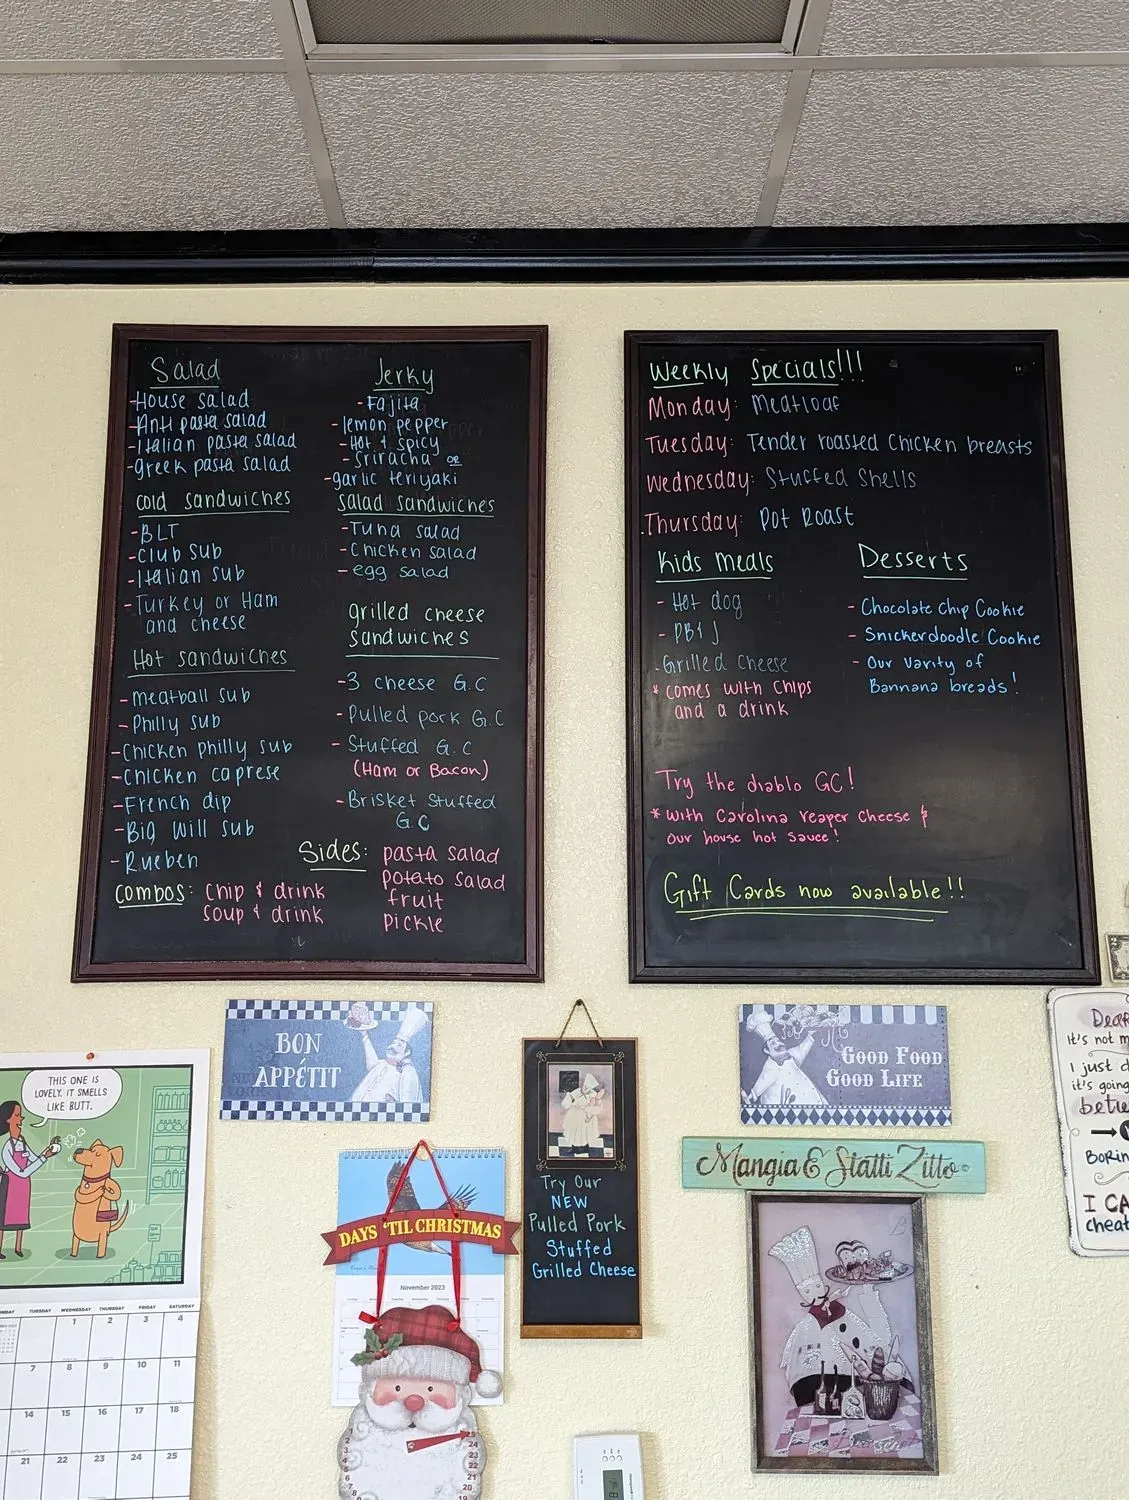 Salad
-House salad
-Anti pasta salad
-Italian pasta salad
-Greek pasta salad
cold sandwiches
-BLT
-Club sub
-Italian sub
-Turkey or Ham
and cheese
Hot sandwiches
-Meatball sub
-Philly sub
-Chicken philly sub
-Chicken caprese
-French dip
-Big Will sub
-Rueben
Combos: chip & drink
soup & drink
Jerky
-Fajita
-lemon pepper
-Hot & spicy
-Sriracha or
-garlic teriyaki
Salad sandwiches
-Tuna salad
-Chicken salad
-egg salad
grilled cheese
sandwiches
-3 cheese G.C
-Pulled pork G.C
-Stuffed G.C
(Ham or Bacon)
-Brisket Stuffed
G.C
Sides: pasta salad
potato salad
fruit
pickle
Weekly Specials!!!
Monday: Meatloaf
Tuesday: Tender roasted Chicken breasts
Wednesday: Stuffed Shells
Thursday: Pot Roast
Kids Meals
-Hot dog
-PB&J
-Grilled Cheese
*comes with chips
and a drink
Desserts
-Chocolate Chip Cookie
-Snickerdoodle Cookie
-Our varity of
Bannana breads!
Try the diablo GC!
*with Carolina reaper cheese &
our house hot sauce!
Gift Cards now available!!
BON
APPÉTIT
GOOD FOOD
GOOD LIFE
THIS ONE IS
LOVELY. IT SMELLS
LIKE BUTT.
TUESDAY WEDNESDAY THURSDAY FRIDAY SATURDAY
1 2 3 4
7 8 9 10 11
14 15 16 17 18
21 22 23 24 25
DAYS 'TIL CHRISTMAS
November 2023
25
24
23
22
21
20
19
2
3
4
5
6
7
8
Try Our
NEW
Pulled Pork
Stuffed
Grilled Cheese
Mangia E Statti Zitto
B
2
Dear
it's not m
I just d
it's going
betw
BORIN
I CA
cheat